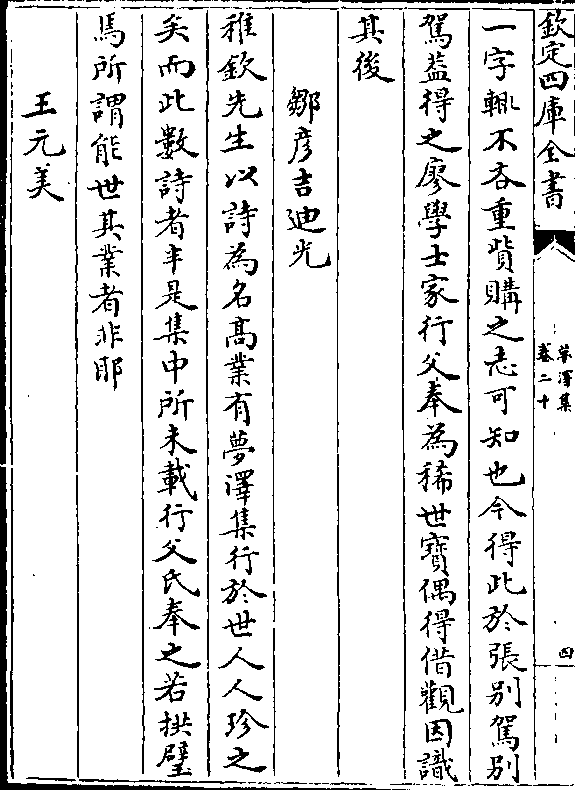 欽定四庫全書
夢澤集
卷二十
四
一字輒不吝重貲購之志可知也今得此於張別駕別
駕葢得之廖學士家行父奉為稀世寶偶得借觀因識
其後
鄒彥吉迪光
稚欽先生以詩為名髙業有夢澤集行於世人人珍之
矣而此數詩者率是集中所未載行父氏奉之若拱璧
焉所謂能世其業者非耶
王元美